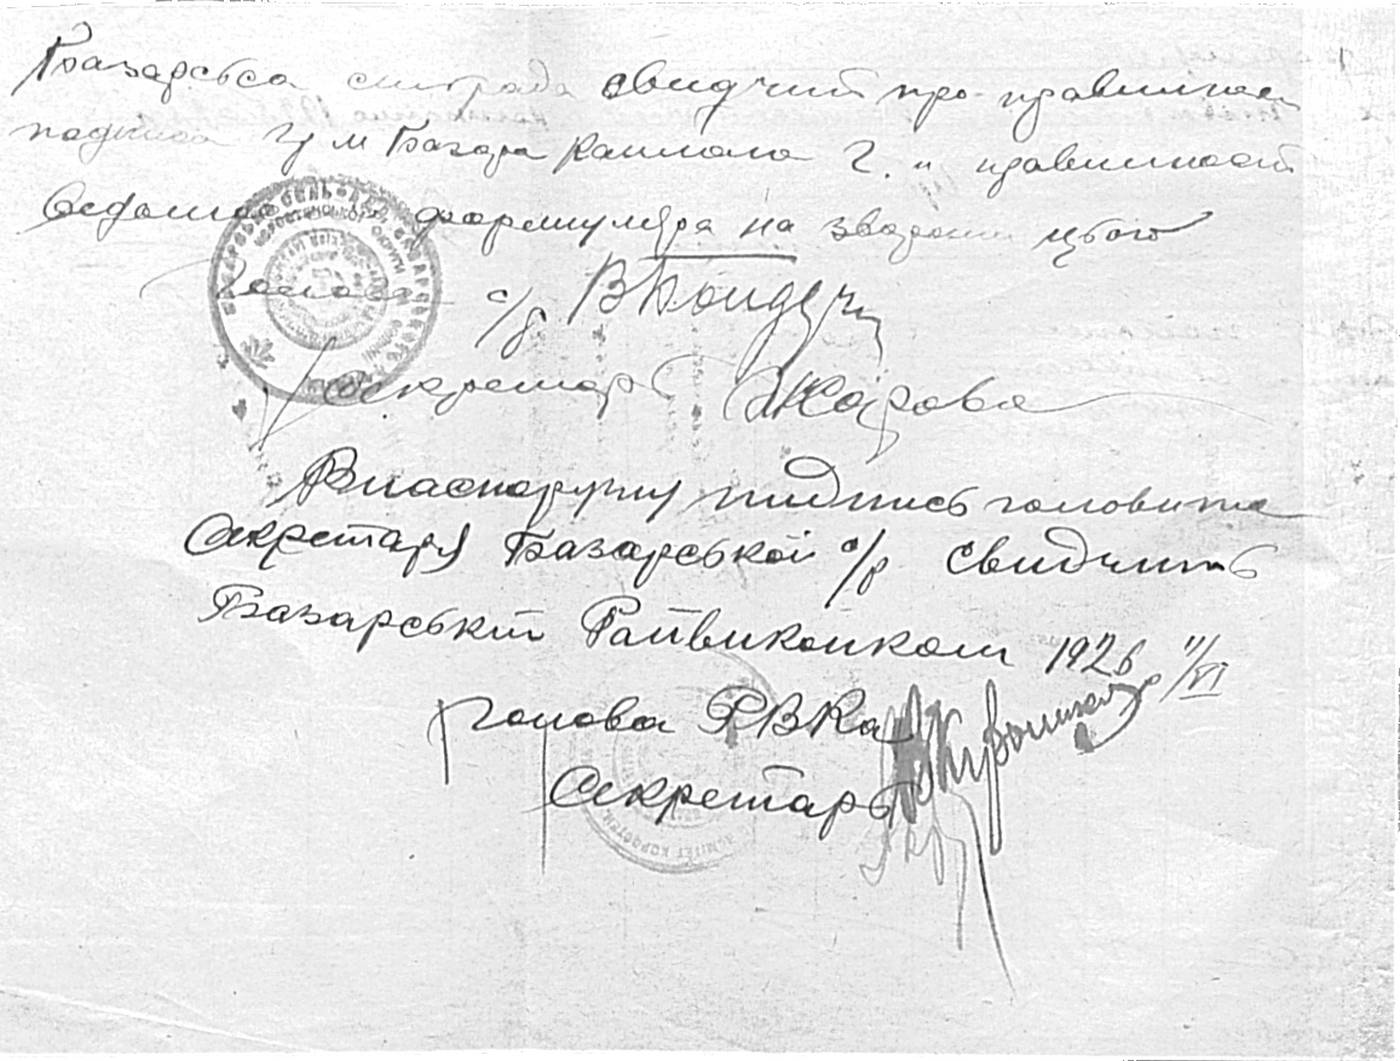 Базарська сільрада свидчит про правильност
подписа гр м Базара Каплана Г. и правильност
формуляра на звороти цього
Голова с/р
Секретар
Власноручну підпись голови та
Секретаря Базарської с/р свидчить
Базарський Райвиконком 1926 11/VI
Голова РВКа
Секретарь